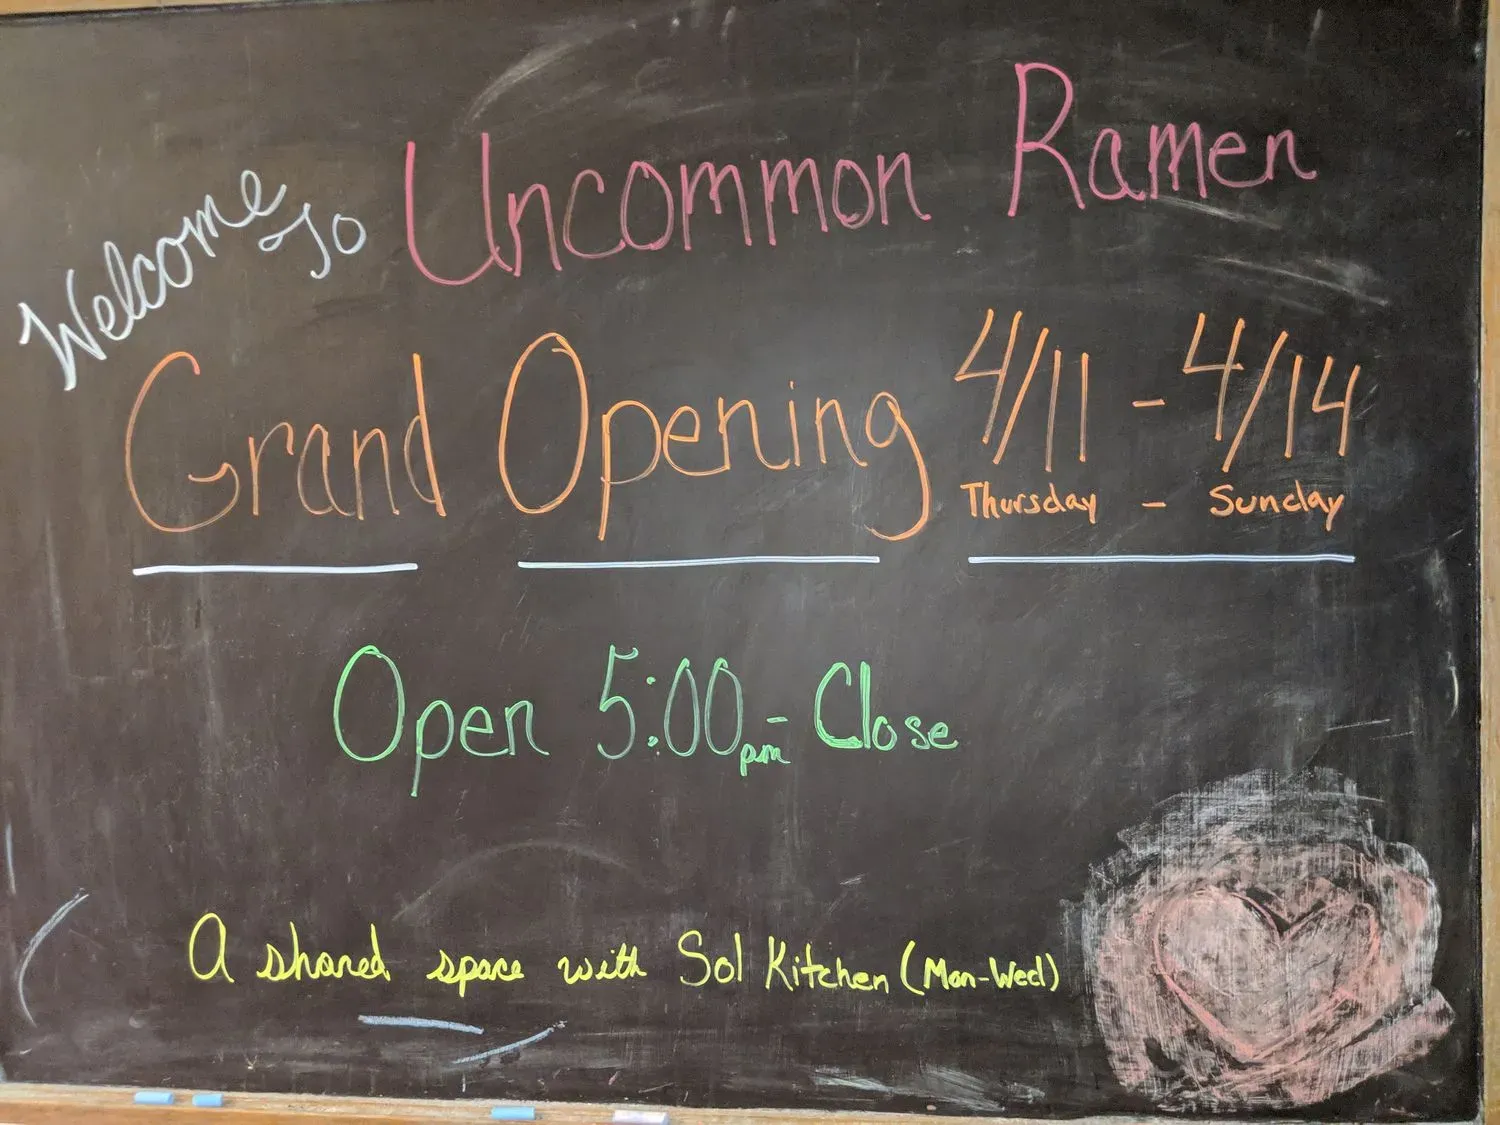 Welcome to Uncommon Ramen
Grand Opening 4/11 - 4/14
Thursday - Sunday
Open 5:00pm - Close
A shared space with Sol Kitchen (Mon-Wed)